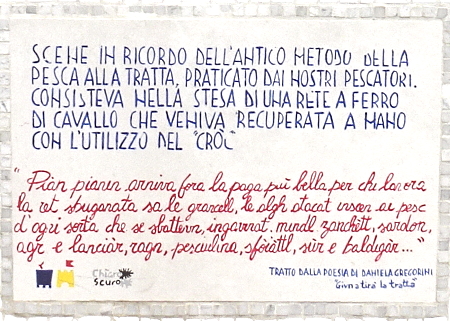 SCENE IN RICORDO DELL'ANTICO METODO DELLA
PESCA ALLA TRATTA, PRATICATO DAI NOSTRI PESCATORI.
CONSISTEVA NELLA STESA DI UNA RETE A FERRO
DI CAVALLO CHE VENIVA RECUPERATA A MANO
CON L'UTILIZZO DEL "CRÒC"
"Pian pianin arriva fora la paga più bella per chi lavora
la ret sbuganata sa le grancell, le algh stacat insiem ai pesc
d'ogni sorta che se sbattevn, ingavnat. mindl zanchètt, sardon,
agr e lanciàr, ragn, pesculina, sfòiàttl, sùr e baldigàr..."
Chiaro
scuro
TRATTO DALLA POESIA DI DANIELA GREGORINI
"Givn a tirà la tratta"